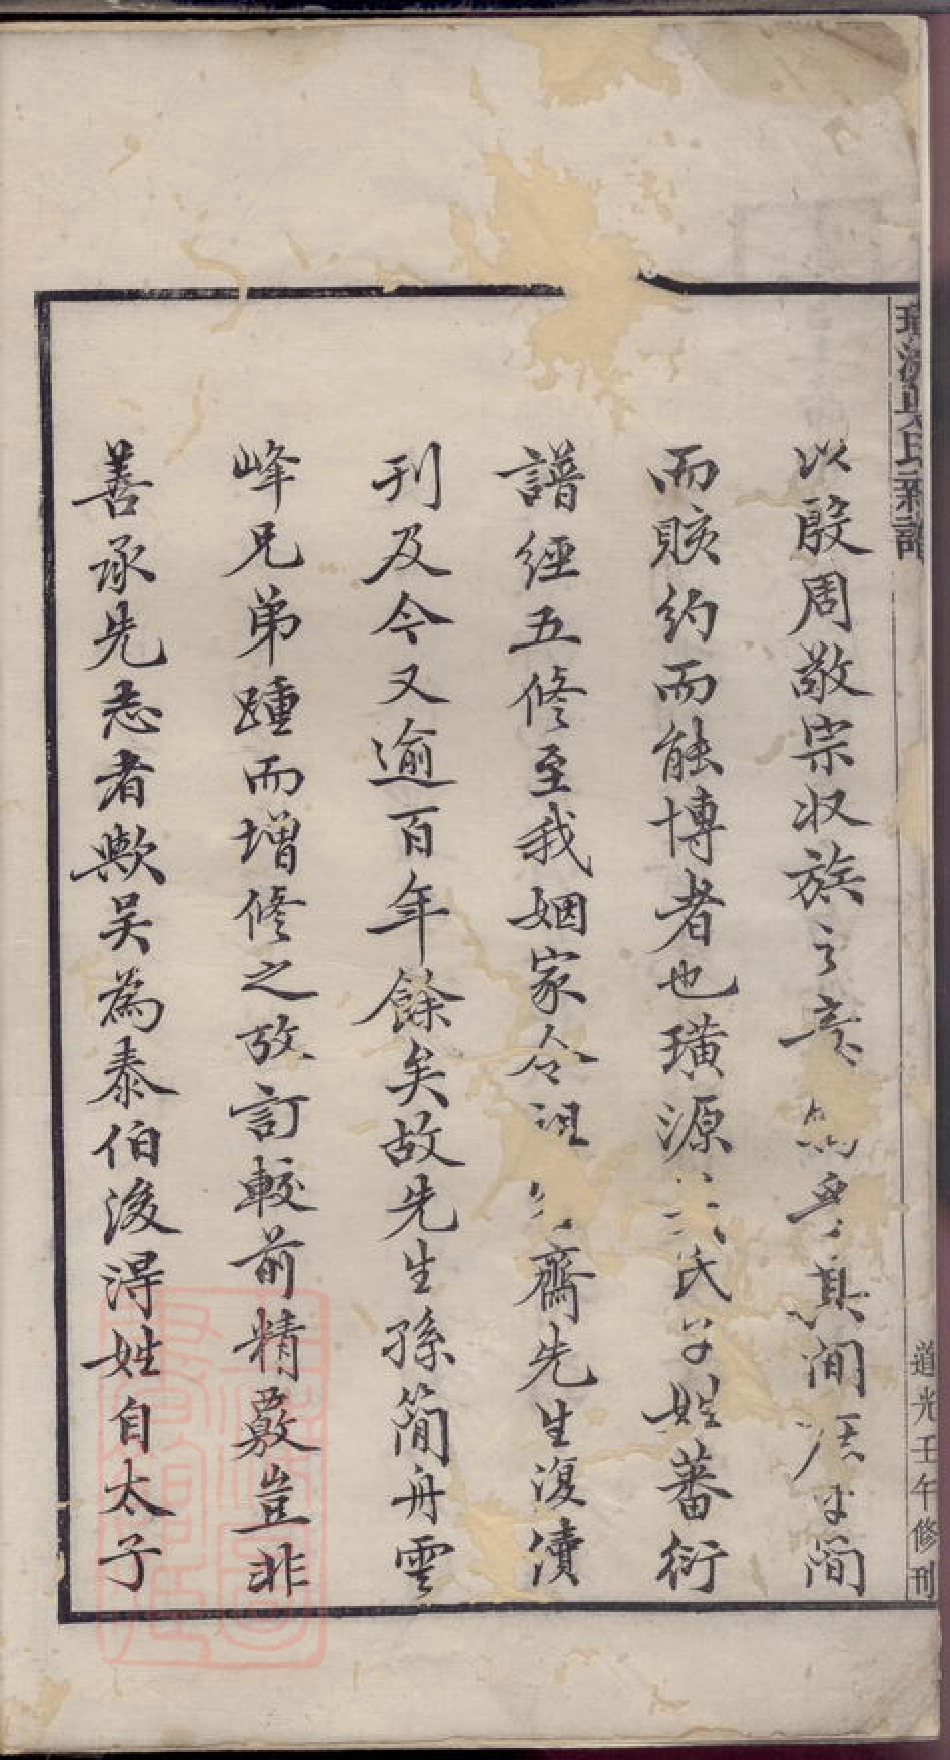 璜源吳氏宗譜
道光壬午修刊
以殷周敬宗収族之意 其間 簡
而賅約而能博者也璜源 氏子姓蕃衍
譜經五修至我姻家令祖 齋先生復續
刊及今又逾百年餘矣故先生孫簡舟雲
峰兄弟踵而增修之攷訂較前精覈豈非
善承先志者歟吳為泰伯後得姓自太子